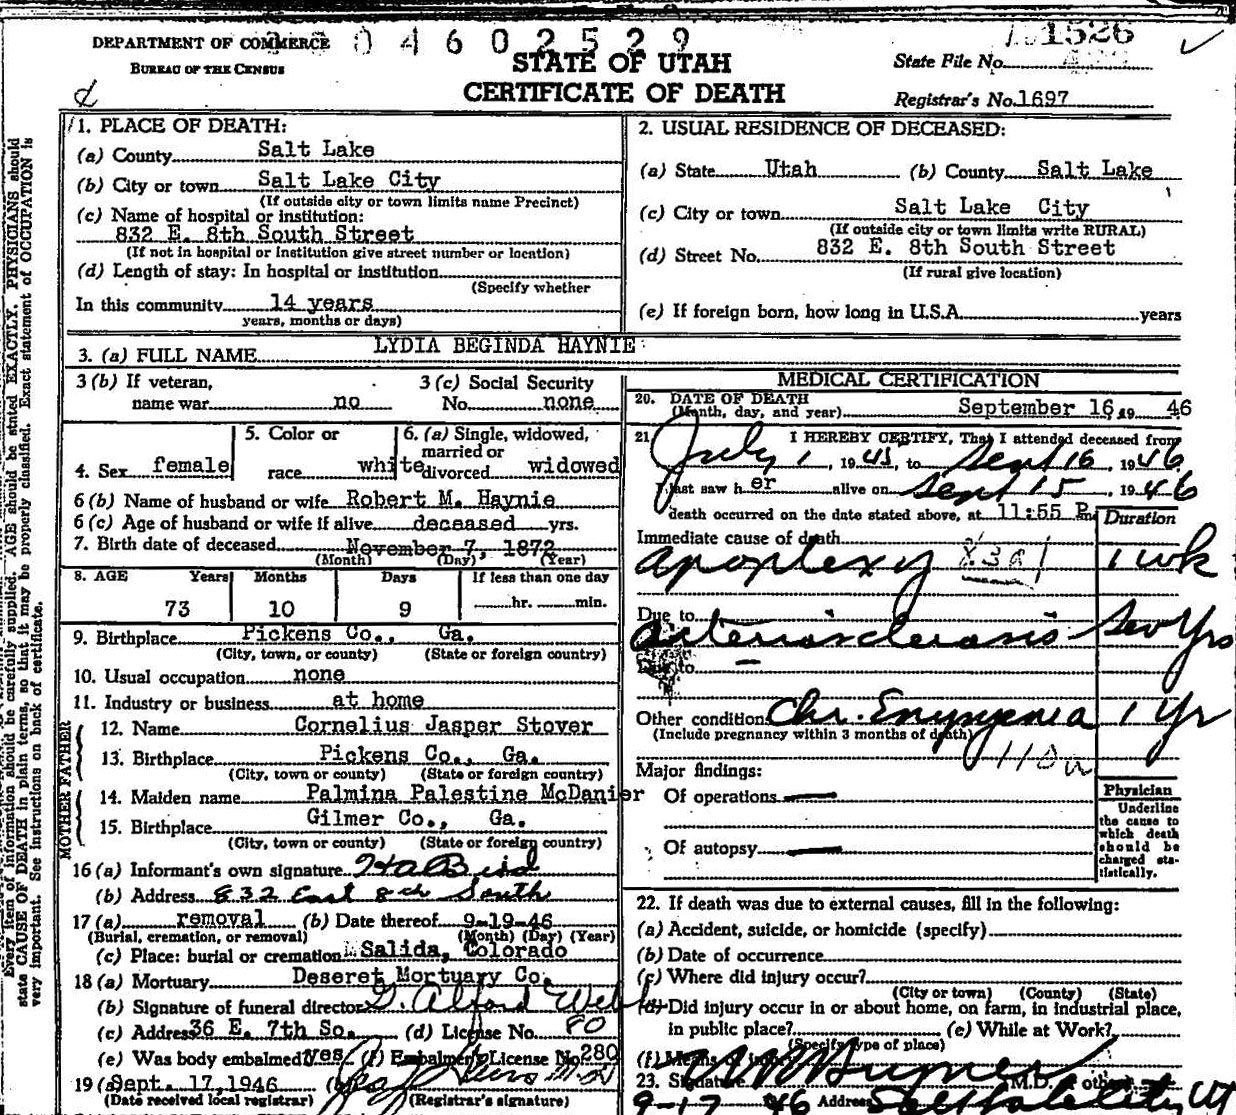 DEPARTMENT OF COMMERCE
BUREAU OF THE CENSUS
0 4 6 0 2 5 2 9
STATE OF UTAH
CERTIFICATE OF DEATH
State File No. 1526
Registrar's No. 1697
1. PLACE OF DEATH:
(a) County Salt Lake
(b) City or town Salt Lake City
(If outside city or town limits name Precinct)
(c) Name of hospital or institution:
832 E. 8th South Street
(If not in hospital or institution give street number or location)
(d) Length of stay: In hospital or institution
(Specify whether
In this community 14 years
years, months or days)
2. USUAL RESIDENCE OF DECEASED:
(a) State Utah (b) County Salt Lake
(c) City or town Salt Lake City
(If outside city or town limits write RURAL)
(d) Street No. 832 E. 8th South Street
(If rural give location)
(e) If foreign born, how long in U.S.A. years
3. (a) FULL NAME LYDIA BEGINDA HAYNIE
3 (b) If veteran, name war no
3 (c) Social Security No. none
4. Sex female
5. Color or race white
6. (a) Single, widowed, married or divorced widowed
6 (b) Name of husband or wife Robert M. Haynie
6 (c) Age of husband or wife if alive deceased yrs.
7. Birth date of deceased November 7, 1872
(Month) (Day) (Year)
8. AGE Years Months Days If less than one day
73 10 9 hr. min.
9. Birthplace Pickens Co., Ga.
(City, town, or county) (State or foreign country)
10. Usual occupation none
11. Industry or business at home
FATHER
12. Name Cornelius Jasper Stover
13. Birthplace Pickens Co., Ga.
(City, town or county) (State or foreign country)
MOTHER
14. Maiden name Palmina Palestine McDanier
15. Birthplace Gilmer Co., Ga.
(City, town or county) (State or foreign country)
16 (a) Informant's own signature
(b) Address 832 East 8th South
17 (a) removal (b) Date thereof 9-19-46
(Burial, cremation, or removal) (Month) (Day) (Year)
(c) Place: burial or cremation Salida, Colorado
18 (a) Mortuary Deseret Mortuary Co.
(b) Signature of funeral director
(c) Address 36 E. 7th So. (d) License No. 80
(e) Was body embalmed? yes (f) Embalmer's License No. 280
19 (a) Sept. 17, 1946 (b)
(Date received local registrar) (Registrar's signature)
MEDICAL CERTIFICATION
20. DATE OF DEATH
(Month, day, and year) September 16, 19 46
21 I HEREBY CERTIFY, That I attended deceased from
July 1, 1945, to Sept 16, 1946
I last saw h er alive on Sept 15, 1946
death occurred on the date stated above, at 11:55 P m.
Duration
Immediate cause of death
apoplexy 83a 1 wk
Due to
arteriosclerosis Sev Yrs
Due to
Other condition Chr. 1 Yr
(Include pregnancy within 3 months of death)
Major findings:
Of operations
Of autopsy
Physician
Underline
the cause to
which death
should be
charged sta-
tistically.
22. If death was due to external causes, fill in the following:
(a) Accident, suicide, or homicide (specify)
(b) Date of occurrence
(c) Where did injury occur?
(City or town) (County) (State)
(d) Did injury occur in or about home, on farm, in industrial place,
in public place? (e) While at Work?
(Specify type of place)
(f) Means of injury
23. Signature M.D. or other
9-17 46 Address Salt Lake City Ut
Every item of information should be carefully supplied. AGE should be stated EXACTLY. PHYSICIANS should
state CAUSE OF DEATH in plain terms, so that it may be properly classified. Exact statement of OCCUPATION is
very important. See instructions on back of certificate.